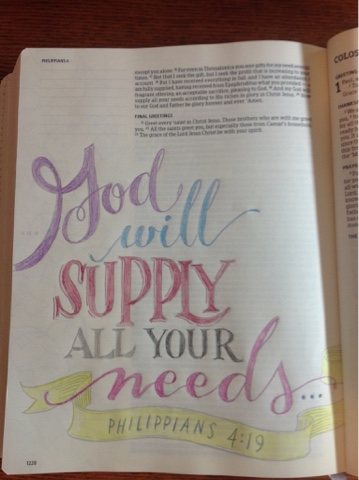 PHILIPPIANS 4
except you alone. 16 For even in Thessalonica you sent gifts for my need several
times. 17 Not that I seek the gift, but I seek the profit that is increasing to your
account. 18 But I have received everything in full, and I have an abundance. I
am fully supplied, having received from Epaphroditus what you provided
fragrant offering, an acceptable sacrifice, pleasing to God. 19 And my God will
supply all your needs according to his riches in glory in Christ Jesus. 20
to our God and Father be glory forever and ever. Amen.
FINAL GREETINGS
21 Greet every saint in Christ Jesus. Those brothers who are with me greet
you. 22 All the saints greet you, but especially those from Caesar's household.
23 The grace of the Lord Jesus Christ be with your spirit.
God
will
SUPPLY
ALL YOUR
needs...
PHILIPPIANS 4:19
1229
COLOS
GREETING
1
THANKS
PRAYE
THE